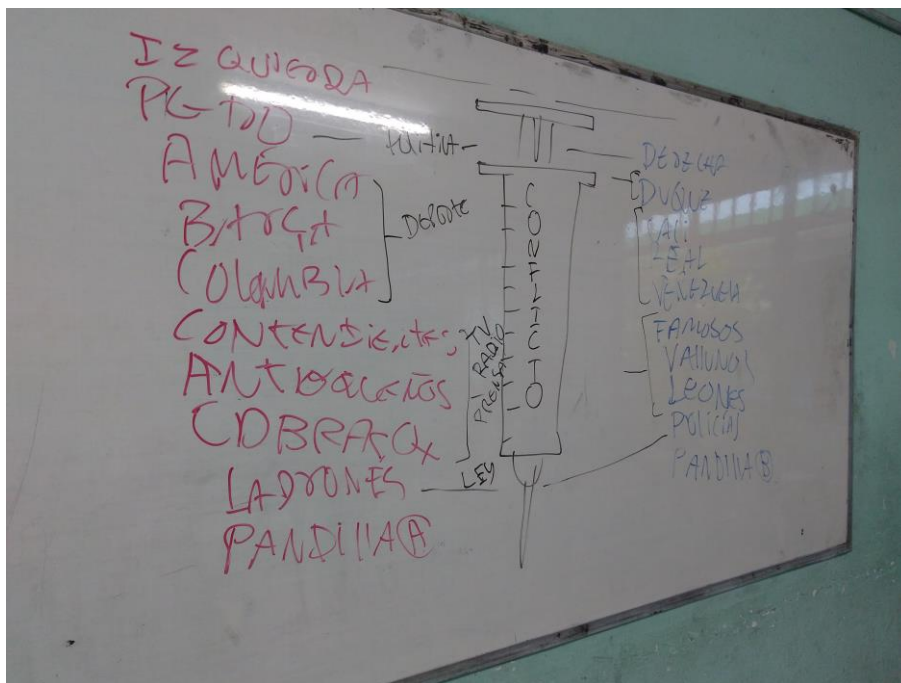 IZQUIERDA
PETRO
AMÉRICA
BARÇA
COLOMBIA
CONTENDIENTES
ANTIOQUEÑOS
COBRAS
LADRONES
PANDILLA A
POLÍTICA
DEPORTE
TV
RADIO
PRENSA
LEY
CONFLICTO
DERECHA
DUQUE
CALI
REAL
VENEZUELA
FAMOSOS
VALLUNOS
LEONES
POLICIAS
PANDILLA B